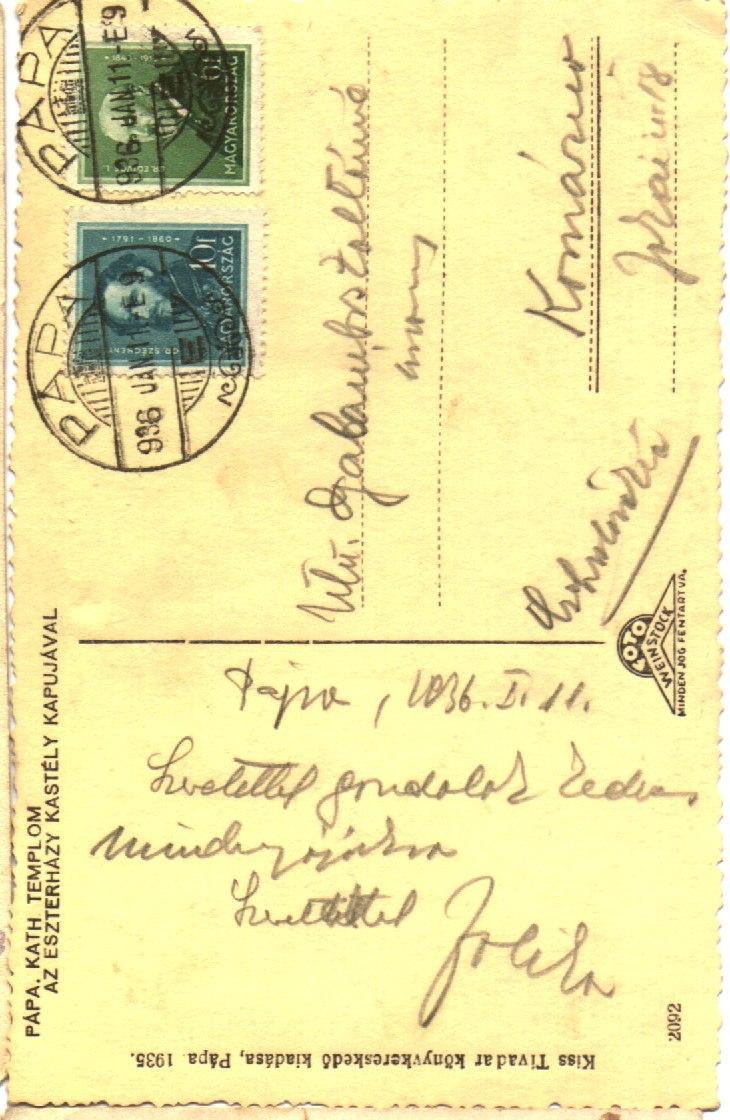 PÁPA. KATH. TEMPLOM
AZ ESZTERHÁZY KASTÉLY KAPUJÁVAL
Pápa, 1936. I. 11.
Szeretettel gondolok kedves
mindnyájukra
Szeretettel
Jolika
Kiss Tivadar könyvkereskedő kiadása, Pápa 1935.
2092
PÁPA
936 JAN 11 - E 9
GR. EÖTVÖS L.
MAGYARORSZÁG
6f
PÁPA
936 JAN 11 - E 9
1791 - 1860
GR. SZÉCHENYI
MAGYARORSZÁG
10f
Zoltánné
Komárno
Jókai u 18
FOTO
WEINSTOCK
MINDEN JOG FENTARTVA.